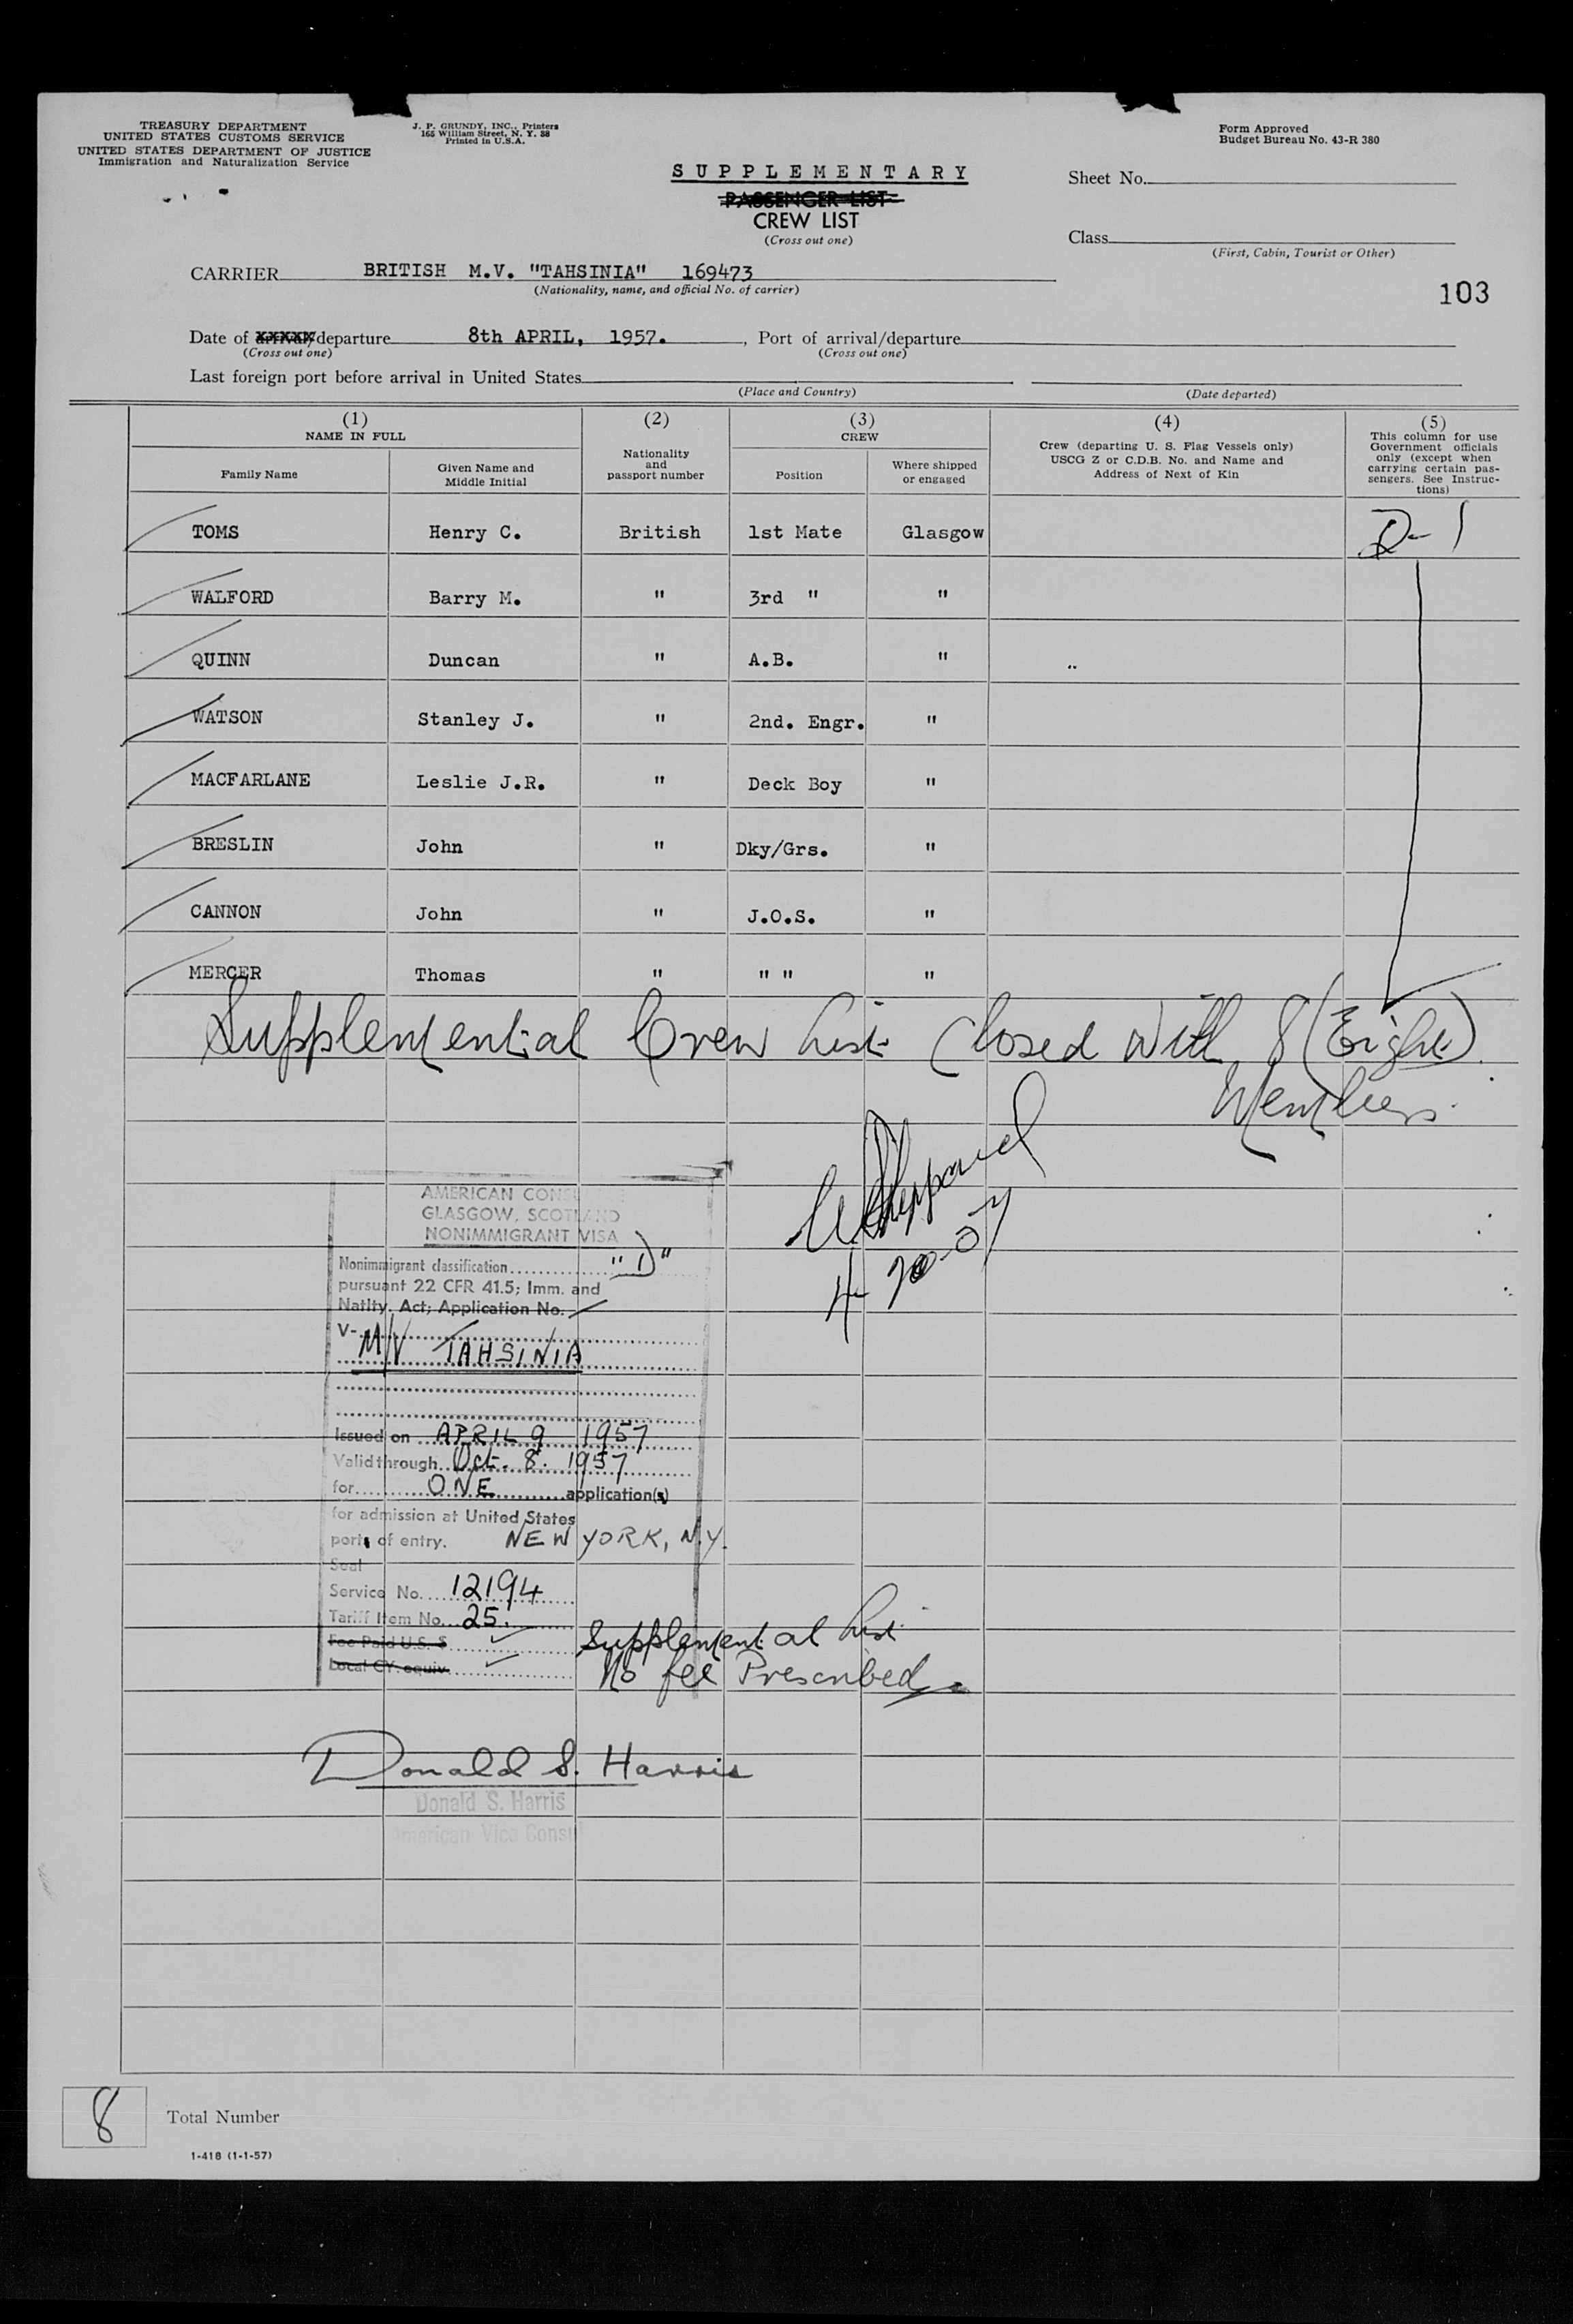 TREASURY DEPARTMENT
UNITED STATES CUSTOMS SERVICE
UNITED STATES DEPARTMENT OF JUSTICE
Immigration and Naturalization Service
J. P. GRUNDY, INC., Printers
165 William Street, N. Y. 38
Printed in U.S.A.
Form Approved
Budget Bureau No. 43-R 380
SUPPLEMENTARY
PASSENGER LIST
CREW LIST
(Cross out one)
Sheet No.
Class
(First, Cabin, Tourist or Other)
CARRIER BRITISH M.V. "TAHSINIA" 169473
(Nationality, name, and official No. of carrier)
103
Date of arrival/departure 8th APRIL, 1957. , Port of arrival/departure
(Cross out one) (Cross out one)
Last foreign port before arrival in United States
(Place and Country) (Date departed)
(1) NAME IN FULL
Family Name
Given Name and Middle Initial
(2)
Nationality and passport number
(3) CREW
Position
Where shipped or engaged
(4)
Crew (departing U. S. Flag Vessels only)
USCG Z or C.D.B. No. and Name and
Address of Next of Kin
(5)
This column for use
Government officials
only (except when
carrying certain pas-
sengers. See Instruc-
tions)
TOMS Henry C. British 1st Mate Glasgow D-1
WALFORD Barry M. " 3rd " "
QUINN Duncan " A.B. "
WATSON Stanley J. " 2nd. Engr. "
MACFARLANE Leslie J.R. " Deck Boy "
BRESLIN John " Dky/Grs. "
CANNON John " J.O.S. "
MERCER Thomas " " " "
Supplemental Crew List Closed With 8 (Eight)
Members.
Sheppard
AMERICAN CONSU
GLASGOW, SCOTLAND
NONIMMIGRANT VISA
Nonimmigrant classification "D"
pursuant 22 CFR 41.5; Imm. and
Natlty. Act; Application No.
V-
M/V TAHSINIA
Issued on APRIL 9 1957
Valid through Oct. 8. 1957
for ONE application(s)
for admission at United States
ports of entry. NEW YORK, N.Y.
Seal
Service No. 12194
Tariff Item No. 25.
Fee Paid U.S. $
Local CY. equiv.
Supplemental List
No fee Prescribed
Donald S. Harris
Donald S. Harris
American Vice Consul
8 Total Number
1-418 (1-1-57)